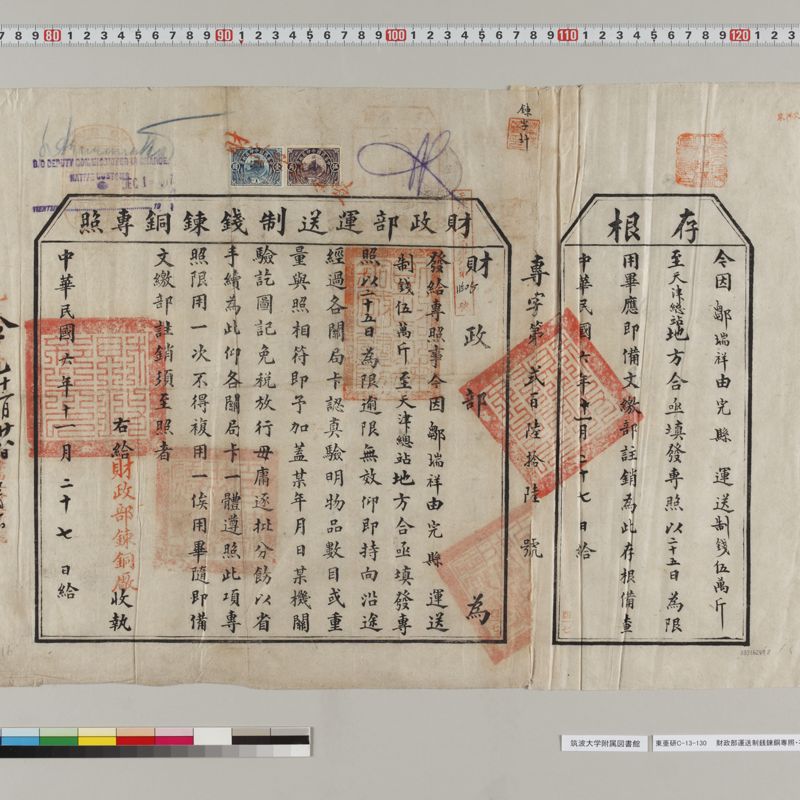 存根
令因鄒瑞祥由完縣運送制錢伍萬斤
至天津總站地方合亟填發專照以二十五日為限
用畢應即備文繳部註銷為此存根備查
中華民國六年十一月二十七日給
專字第弍百陸拾陸號
財政部運送制錢鍊銅專照
財政部為
發給專照事令因鄒瑞祥由完縣運送
制錢伍萬斤至天津總站地方合亟填發專
照以二十五日為限逾限無放仰即持向沿途
經過各關局卡認真驗明物品數目或重
量與照相符即予加蓋某年月日某機關
驗訖圖記免稅放行毋庸逐批分飭以省
手續為此仰各關局卡一體遵照此項專
照限用一次不得複用一俟用畢隨即備
文繳部註銷須至照者
右給財政部鍊銅廠收執
中華民國六年十一月二十七日給
鍊字計
S/O DEPUTY COMMISSIONER IN CHARGE,
NATIVE CUSTOMS
DEC 1
TIENTSIN
筑波大学附属図書館
東亜研C-13-130 財政部運送制銭錬銅専照・